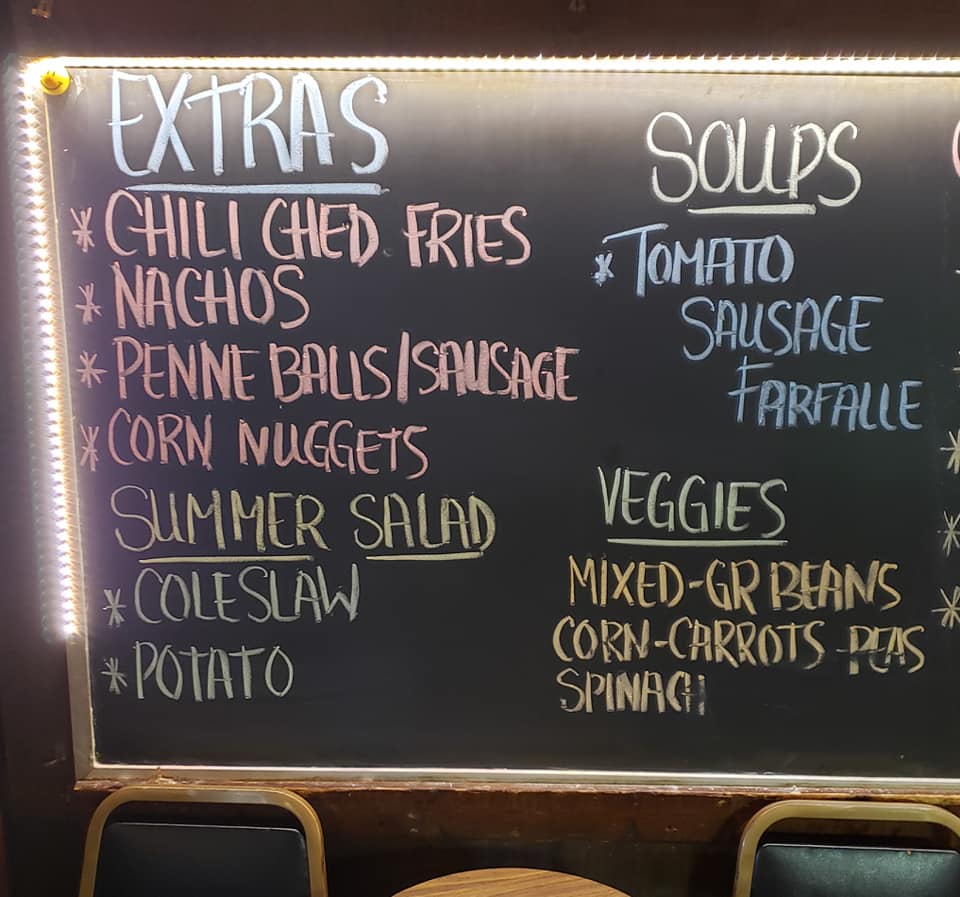 EXTRAS
* CHILI CHED FRIES
* NACHOS
* PENNE BALLS/SAUSAGE
* CORN NUGGETS
SUMMER SALAD
* COLESLAW
* POTATO
SOUPS
* TOMATO
SAUSAGE
FARFALLE
VEGGIES
MIXED-GR BEANS
CORN-CARROTS-PEAS
SPINACH